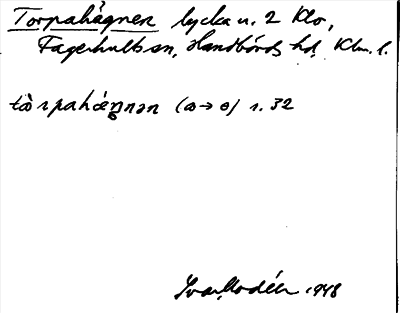 Torpahägnen lycka u. 2 Klo,
Fagerhult sn, Handbörds hd, Klm. l.
tòrpahǽŋnən (ə→ɵ) s. 32
Ivar Modéer 1948